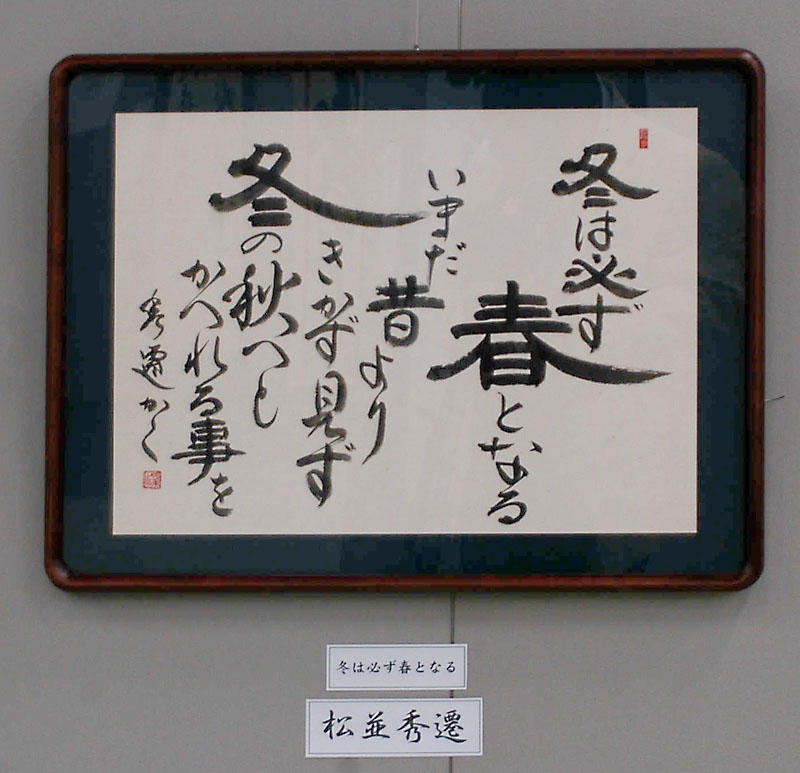 冬は必ず
春となる
いまだ
昔より
きかず見ず
冬の秋へと
かへれる事を
秀遷かく
冬は必ず春となる
松並秀遷